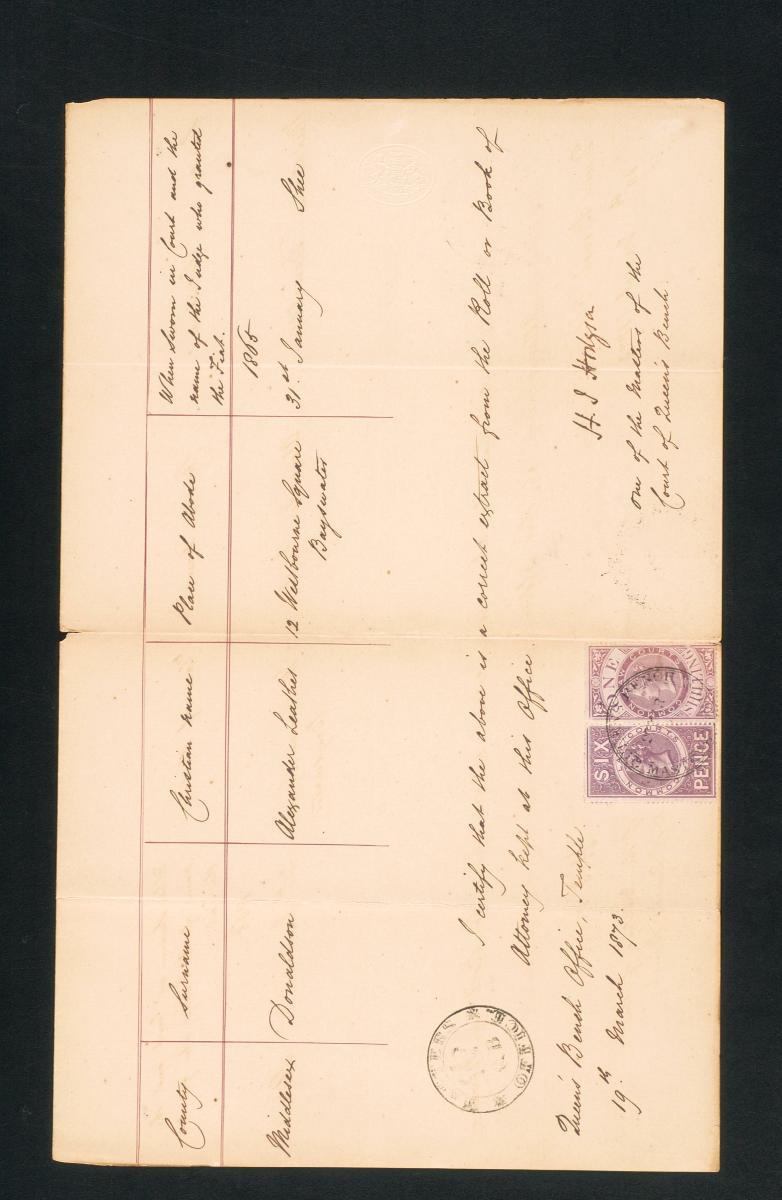 County
Surname
Christian name
Place of Abode
When Sworn in Court and the
name of the Judge who granted
the Fiat.
Middlesex
Donaldson
Alexander Leathes
12 Westbourne Square
Bayswater
1865
31st January Shee
I certify that the above is a correct extract from the Roll or Book of
Attorney kept at this Office
Queen's Bench Office, Temple.
19th March 1873.
H. J. Hodgson
one of the Masters of the
Court of Queen's Bench
SIX
COMMON LAW COURTS
PENCE
ONE
COMMON LAW COURTS
SHILLING
BENCH
MASTERS
OFFICE